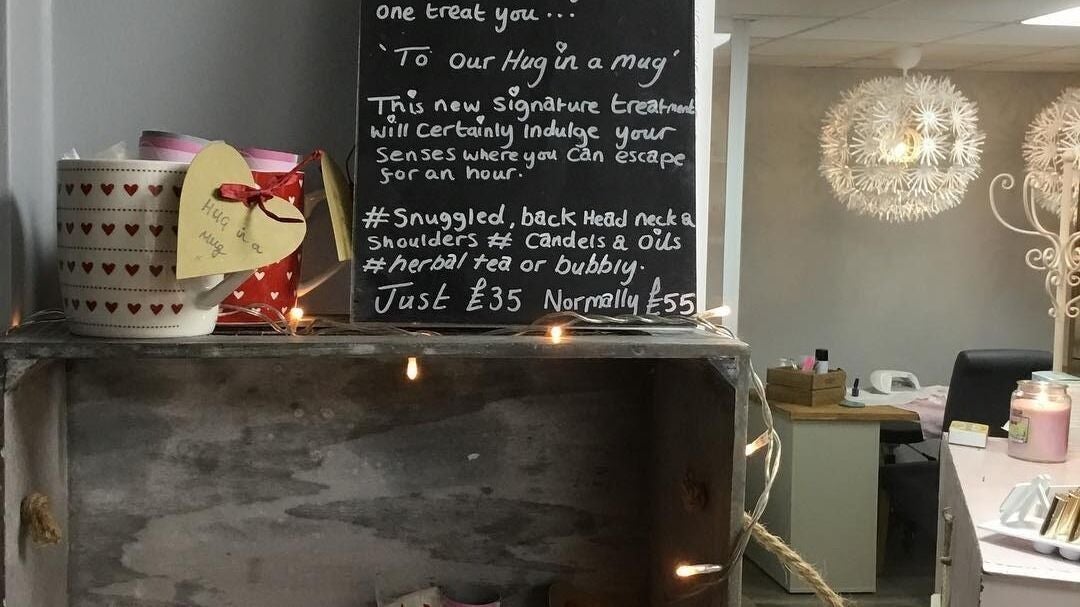 one treat you...
'To our Hug in a mug'
This new signature treatment
will certainly indulge your
senses where you can escape
for an hour.
#Snuggled, back Head neck &
Shoulders # Candels & Oils
#herbal tea or bubbly.
Just £35 Normally £55
Hug
in a
Mug